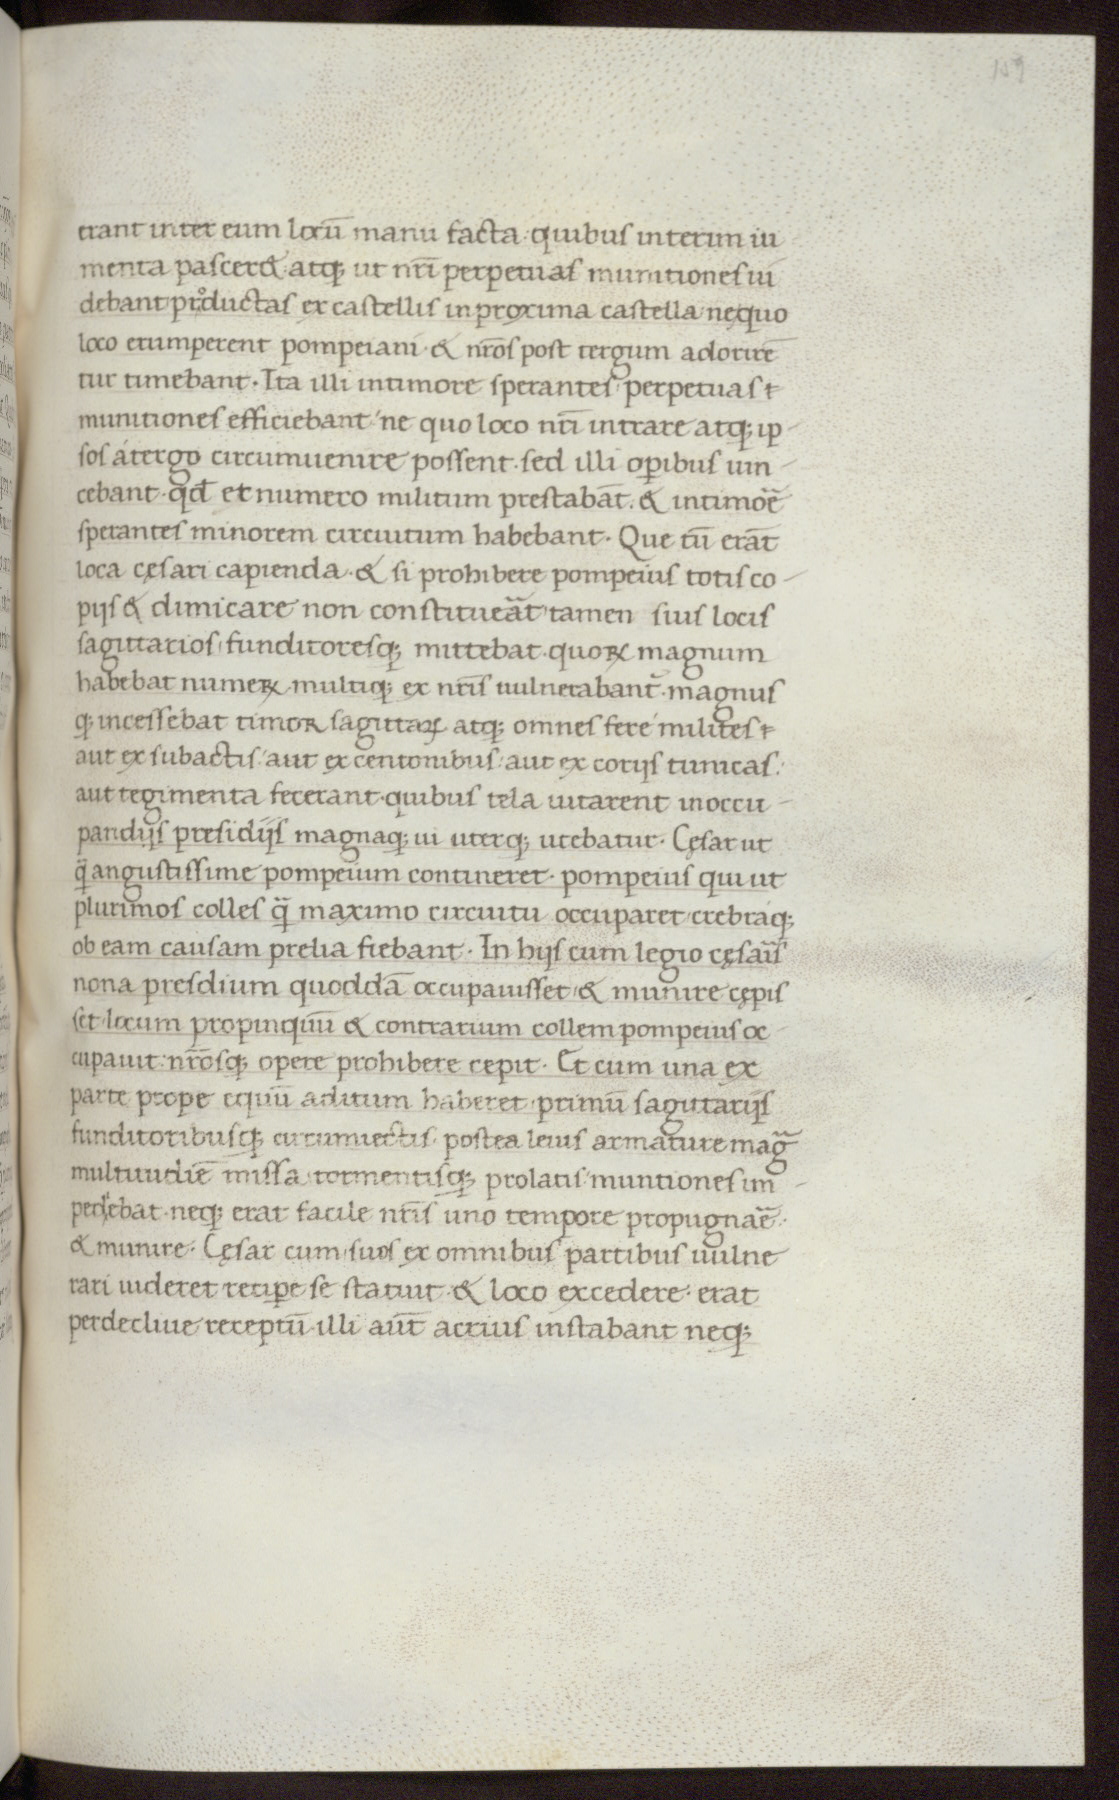 159
erant inter eum locū manu facta · quibus interim iu
menta pascer& · atq; ut nr̄i perpetuas munitiones ui
debant productas ex castellis in proxima castella nequo
loco erumperent pompeiani · & nr̄os post tergum adorire͞
tur timebant · Ita illi intimore sperantes perpetuas
munitiones efficiebant ne quo loco nr̄i intrare atq; ip-
sos átergo circumuenire possent · sed illi oꝑibus uin-
cebant · qd̄ et numero militum prestabāt · & intimōe
sperantes minorem circuitum habebant · Que cū erāt
loca cęsari capienda · & si prohibere pompeius totis co-
pijs & dimicare non constitueāt tamen suis locis
sagittarios funditoresq; mittebat · quoꝝ magnum
habebat numeꝝ · multiq; ex nr̄is uulnerabant̄ · magnus
q; incessebat timor sagittaꝝ atq; omnes fere milites
aut ex subactis aut ex centonibus aut ex corijs tunicas
aut tegimenta fecerant · quibus tela uitarent inoccu-
pandijs presidijs magnaq; ui uterq; utebatur · Cęsar ut
q̄ angustissime pompeium contineret · pompeius qui ut
plurimos colles q̄ maximo circuitu occuparet crebraq;
ob eam causam prelia fiebant · In hijs cum legio cęsar̄is
nona presdium quoddā occupauisset & munire cępis
set locum propinquū & contrarium collem pompeius oc-
cupauit · nr̄osq; opere prohibere cepit · Et cum una ex
parte prope equū aditum haberet primū sagittarijs
funditoribusq; circumiectis · postea leuis armature maḡ
multitudīe missa tormentisq; prolatis muntiones im-
pediebat · neq; erat facile nr̄is uno tempore propugnāe ·
& munire · Cęsar cum suos ex omnibus partibus uulne
rari uideret reciꝑe se statuit · & loco excedere · erat
perdecliue receptū · illi aūt acrius instabant neq;